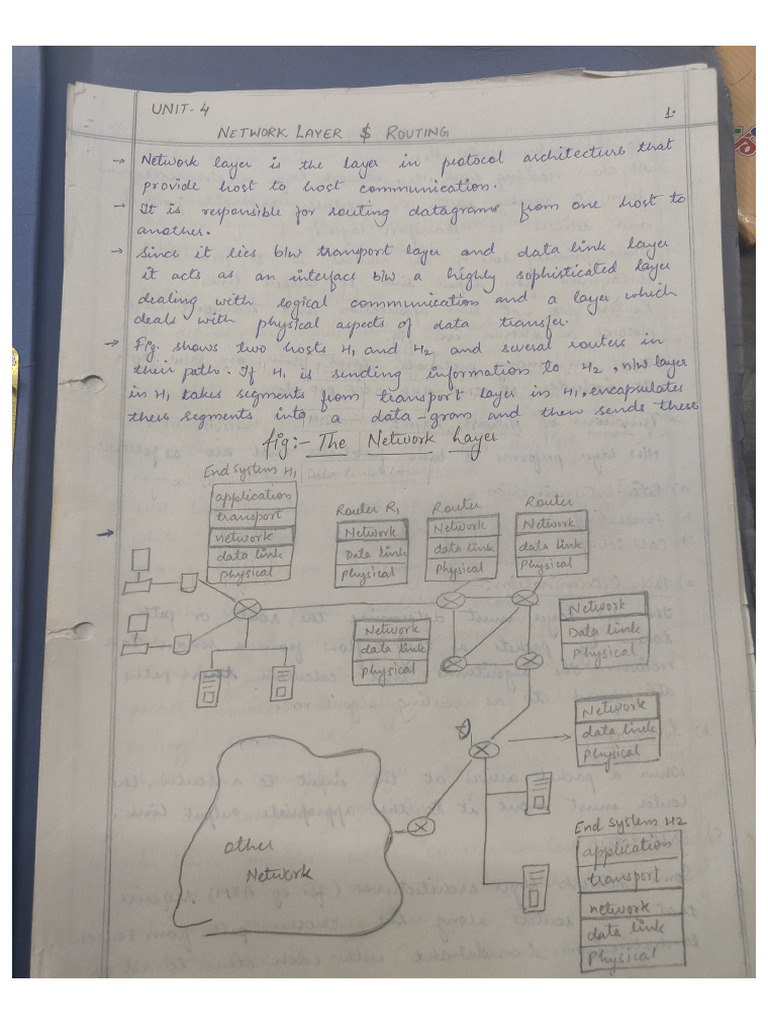 UNIT-4
1.
NETWORK LAYER & ROUTING
→ Network layer is the layer in protocol architecture that
provide host to host communication.
→ It is responsible for routing datagrams from one host to
another.
→ Since it lies b/w transport layer and data link layer
it acts as an interface b/w a highly sophisticated layer
dealing with logical communication and a layer which
deals with physical aspects of data transfer.
→ Fig. shows two hosts H1 and H2 and several routers in
their path. If H1 is sending information to H2, n/w layer
in H1 takes segments from transport layer in H1, encapsulates
these segments into a data-gram and then sends these
fig:- The Network Layer
End System H1
application
transport
network
data link
physical
Router R1
Network
Data link
Physical
Router
Network
data link
Physical
Router
Network
data link
Physical
Network
data link
Physical
Network
Data link
Physical
Network
data link
Physical
other
Network
End System H2
application
transport
network
data link
Physical